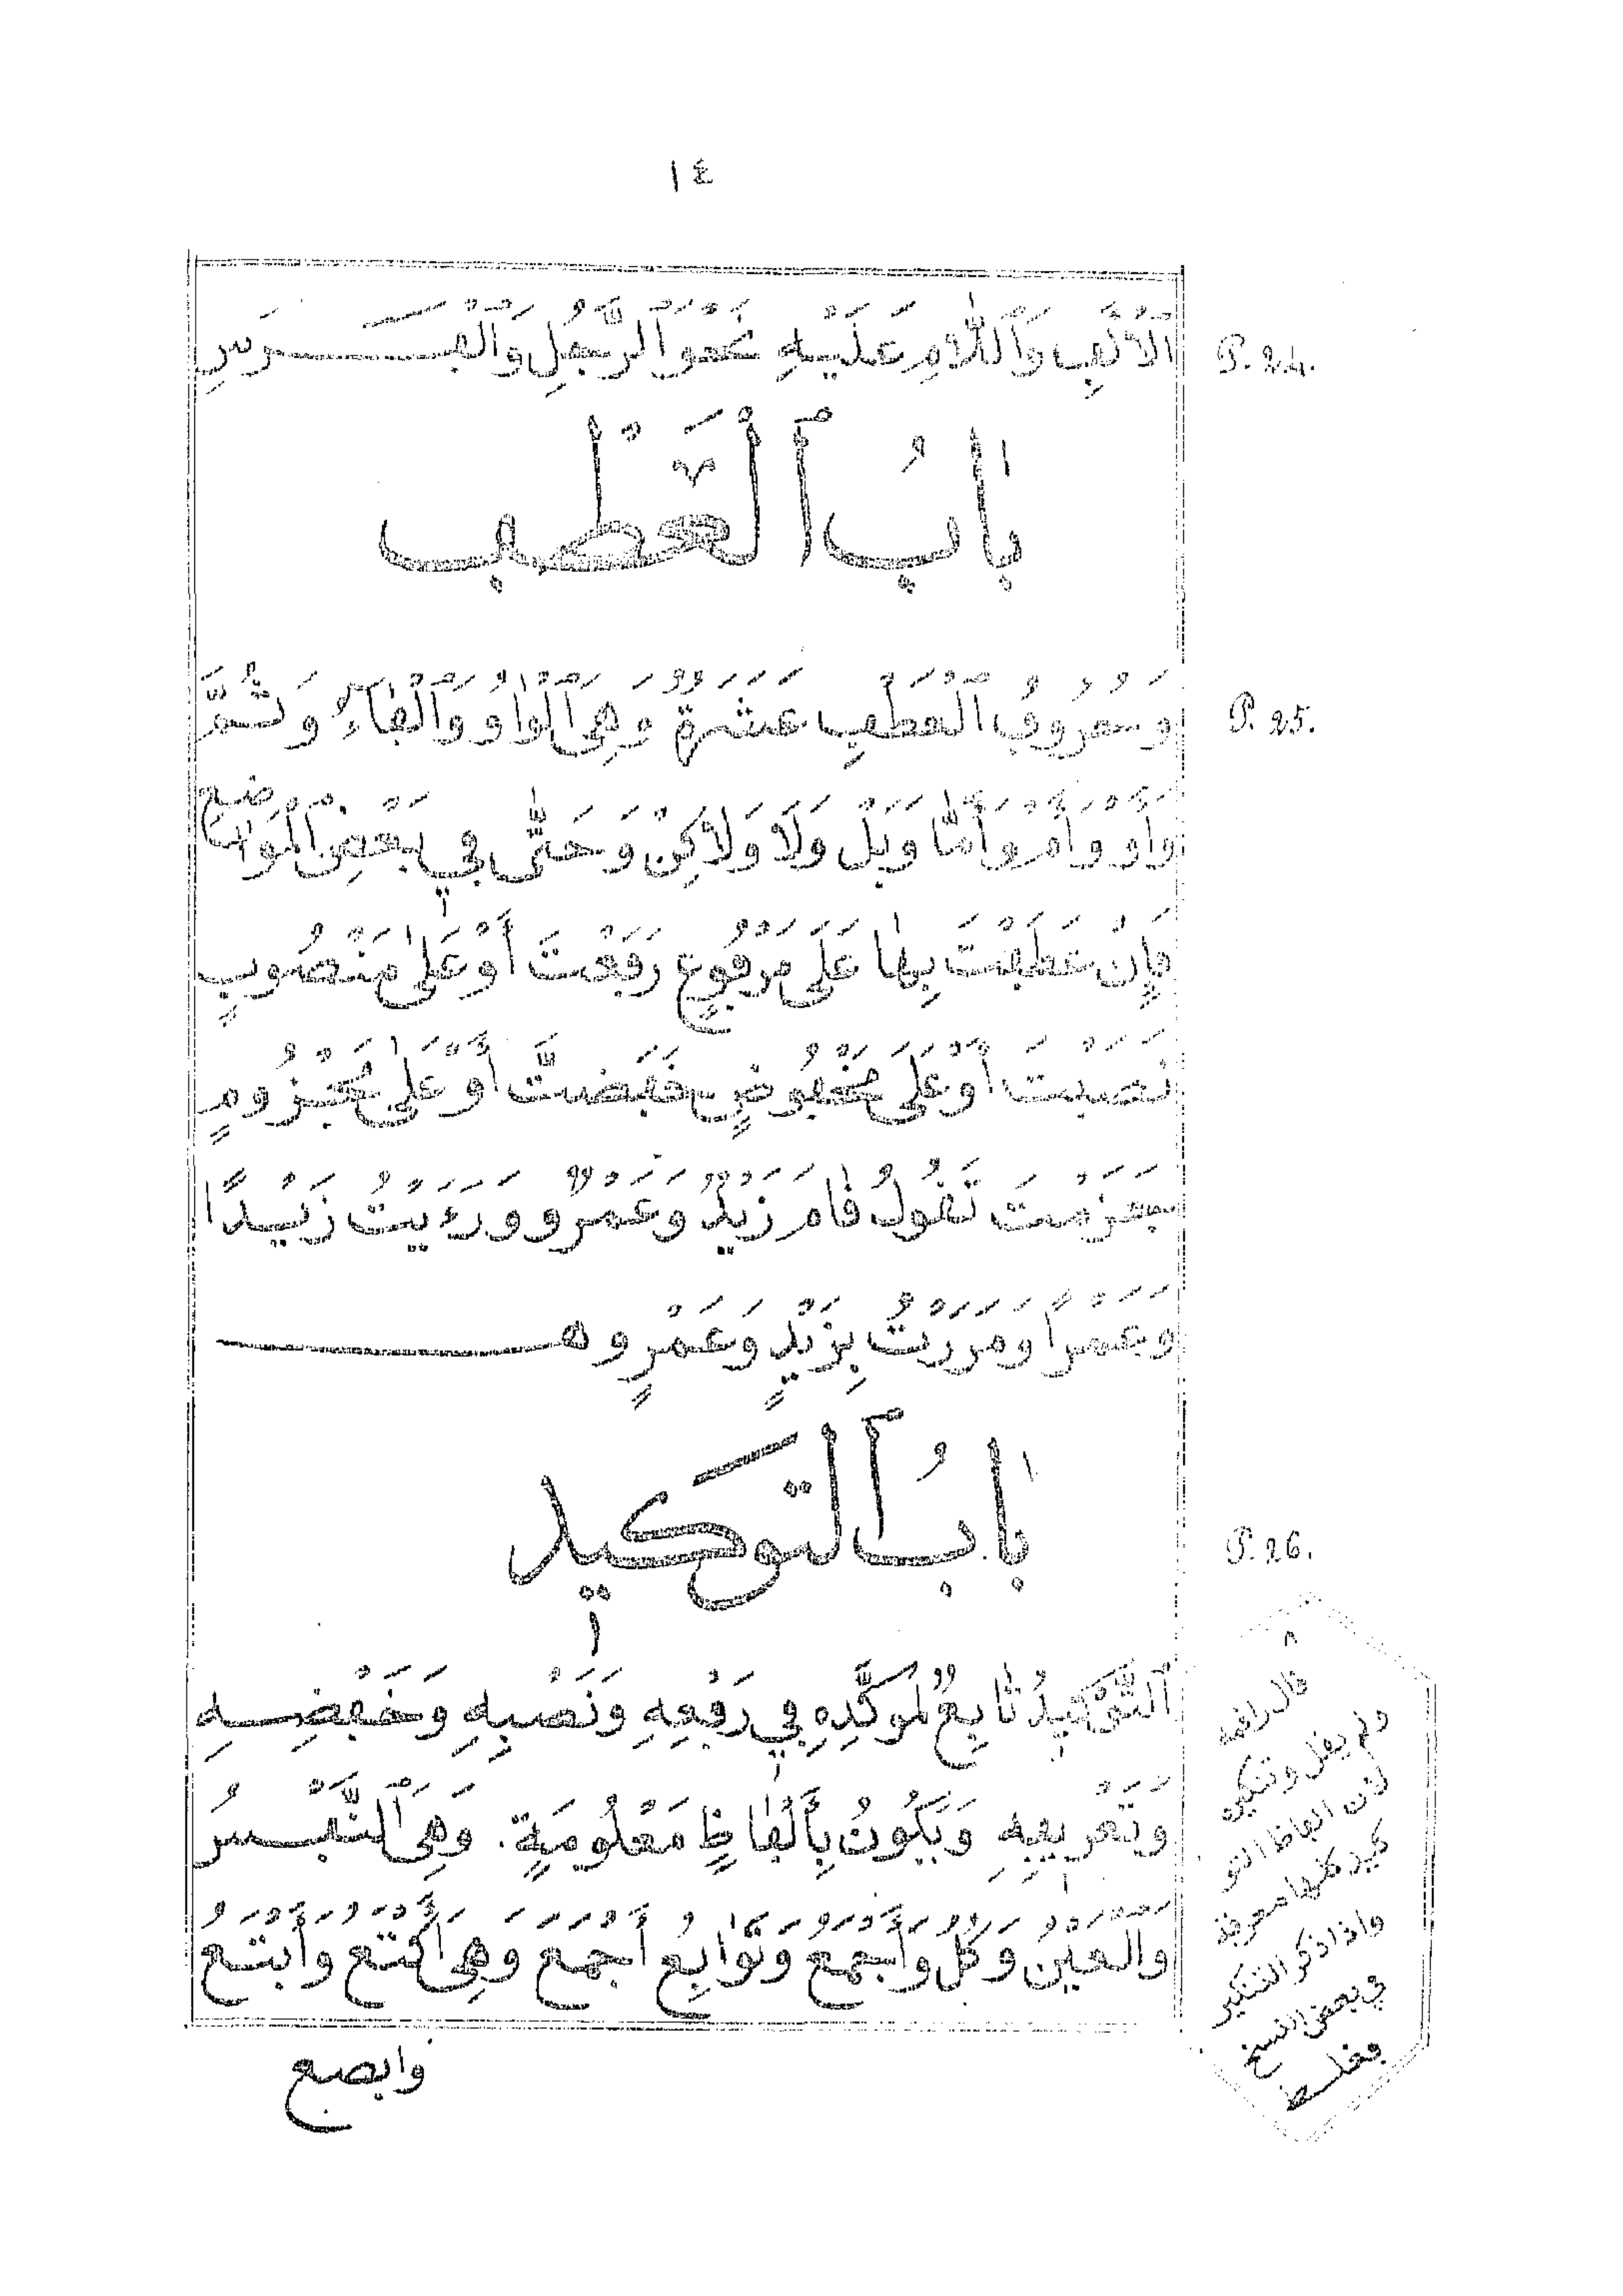 ١٤
اَلْأَلِفِ وَٱللَّامِ عَلَيْهِ نَحْوَ ٱلرَّجُلِ وَٱلْفَرَسِ
P. 24.
بَابُ ٱلْعَطْفِ
وَحُرُوفُ ٱلْعَطْفِ عَشَرَةٌ وَهِىَ ٱلْوَاوُ وَٱلْفَاءُ وَثُمَّ
P. 25.
وَأَوْ وَأَمْ وَأَمَّا وَبَلْ وَلَا وَلَاكِنْ وَحَتَّى فِي بَعْضِ ٱلْمَوَاضِعِ
فَإِنْ عَطَفْتَ بِهَا عَلَى مَرْفُوعٍ رَفَعْتَ أَوْ عَلَى مَنْصُوبٍ
نَصَبْتَ أَوْ عَلَى مَخْفُوضٍ خَفَضْتَ أَوْ عَلَى مَجْزُومٍ
جَزَمْتَ تَقُولُ قَامَ زَيْدٌ وَعَمْرٌو وَرَءَيْتُ زَيْدًا
وَعَمْرًا وَمَرَرْتُ بِزَيْدٍ وَعَمْرٍو ه
بَابُ ٱلتَّوكيد
P. 26.
اَلتَّوْكِيدُ تَابِعٌ لِمُوَكَّدِهِ فِي رَفْعِهِ وَنَصْبِهِ وَخَفْضِهِ
وَتَعْرِيفِهِ وَيَكُونُ بِأَلْفَاظٍ مَعْلُومَةٍ. وَهِىَ ٱلنَّفْسُ
وَالْعَيْنُ وَكُلُّ وَأَجْمَعُ وَتَوَابِعُ أَجْمَعَ وَهِىَ أَكْتَعُ وَأَبْتَعُ
وابصع
قال راقمه
ولم يقل وتنكيره
لان الفاظ التو
كيد كلها معرفة
واذا ذكر التنكير
في بعض النسخ
فغلط